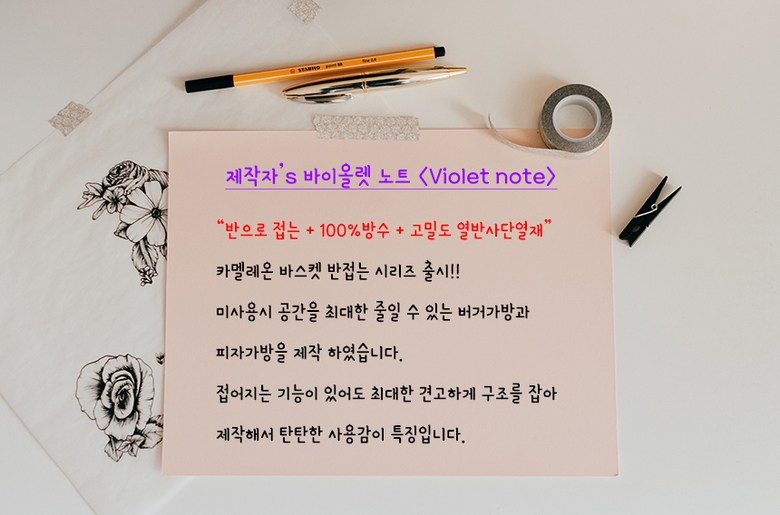 STABILO point 88 fine 0.4
제작자's 바이올렛 노트 <Violet note>
"반으로 접는 + 100%방수 + 고밀도 열반사단열재"
카멜레온 바스켓 반접는 시리즈 출시!!
미사용시 공간을 최대한 줄일 수 있는 버거가방과
피자가방을 제작 하였습니다.
접어지는 기능이 있어도 최대한 견고하게 구조를 잡아
제작해서 탄탄한 사용감이 특징입니다.